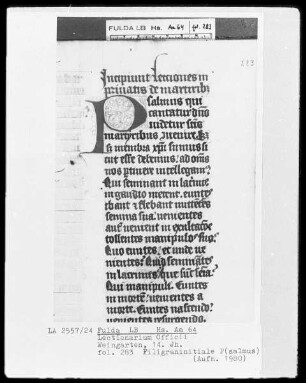 FULDA LB Hs. Aa 64 fol. 283
283
Incipiunt Lectiones in
privatis de martirib
Psalmus qui
cantatur dno
videtur scis
martyribus venire. Et
si membra xpi sumus si
cut esse debemus. ad om̄s
nos ptinere intellegam9.
Qui seminant in lacrimis
in gaudio metent. euntes
ibant & flebant mittētes
semina sua. venientes
aut venient in exultacōe
tollentes manipulos suos.
Quo eunt&, et unde ve
nientes: Quid seminātes
in lacrimis, que sūt seīa:
Qui manipuli. Euntes
in mortē: venientes a
morte. Euntes nascendo.
venientes resurgendo.
LA 2557/24 Fulda LB Hs. Aa 64
Lectionarium Officii
Weingarten, 14. Jh.
fol. 283 Filigraninitiale P(salmus)
(Aufn. 1980)